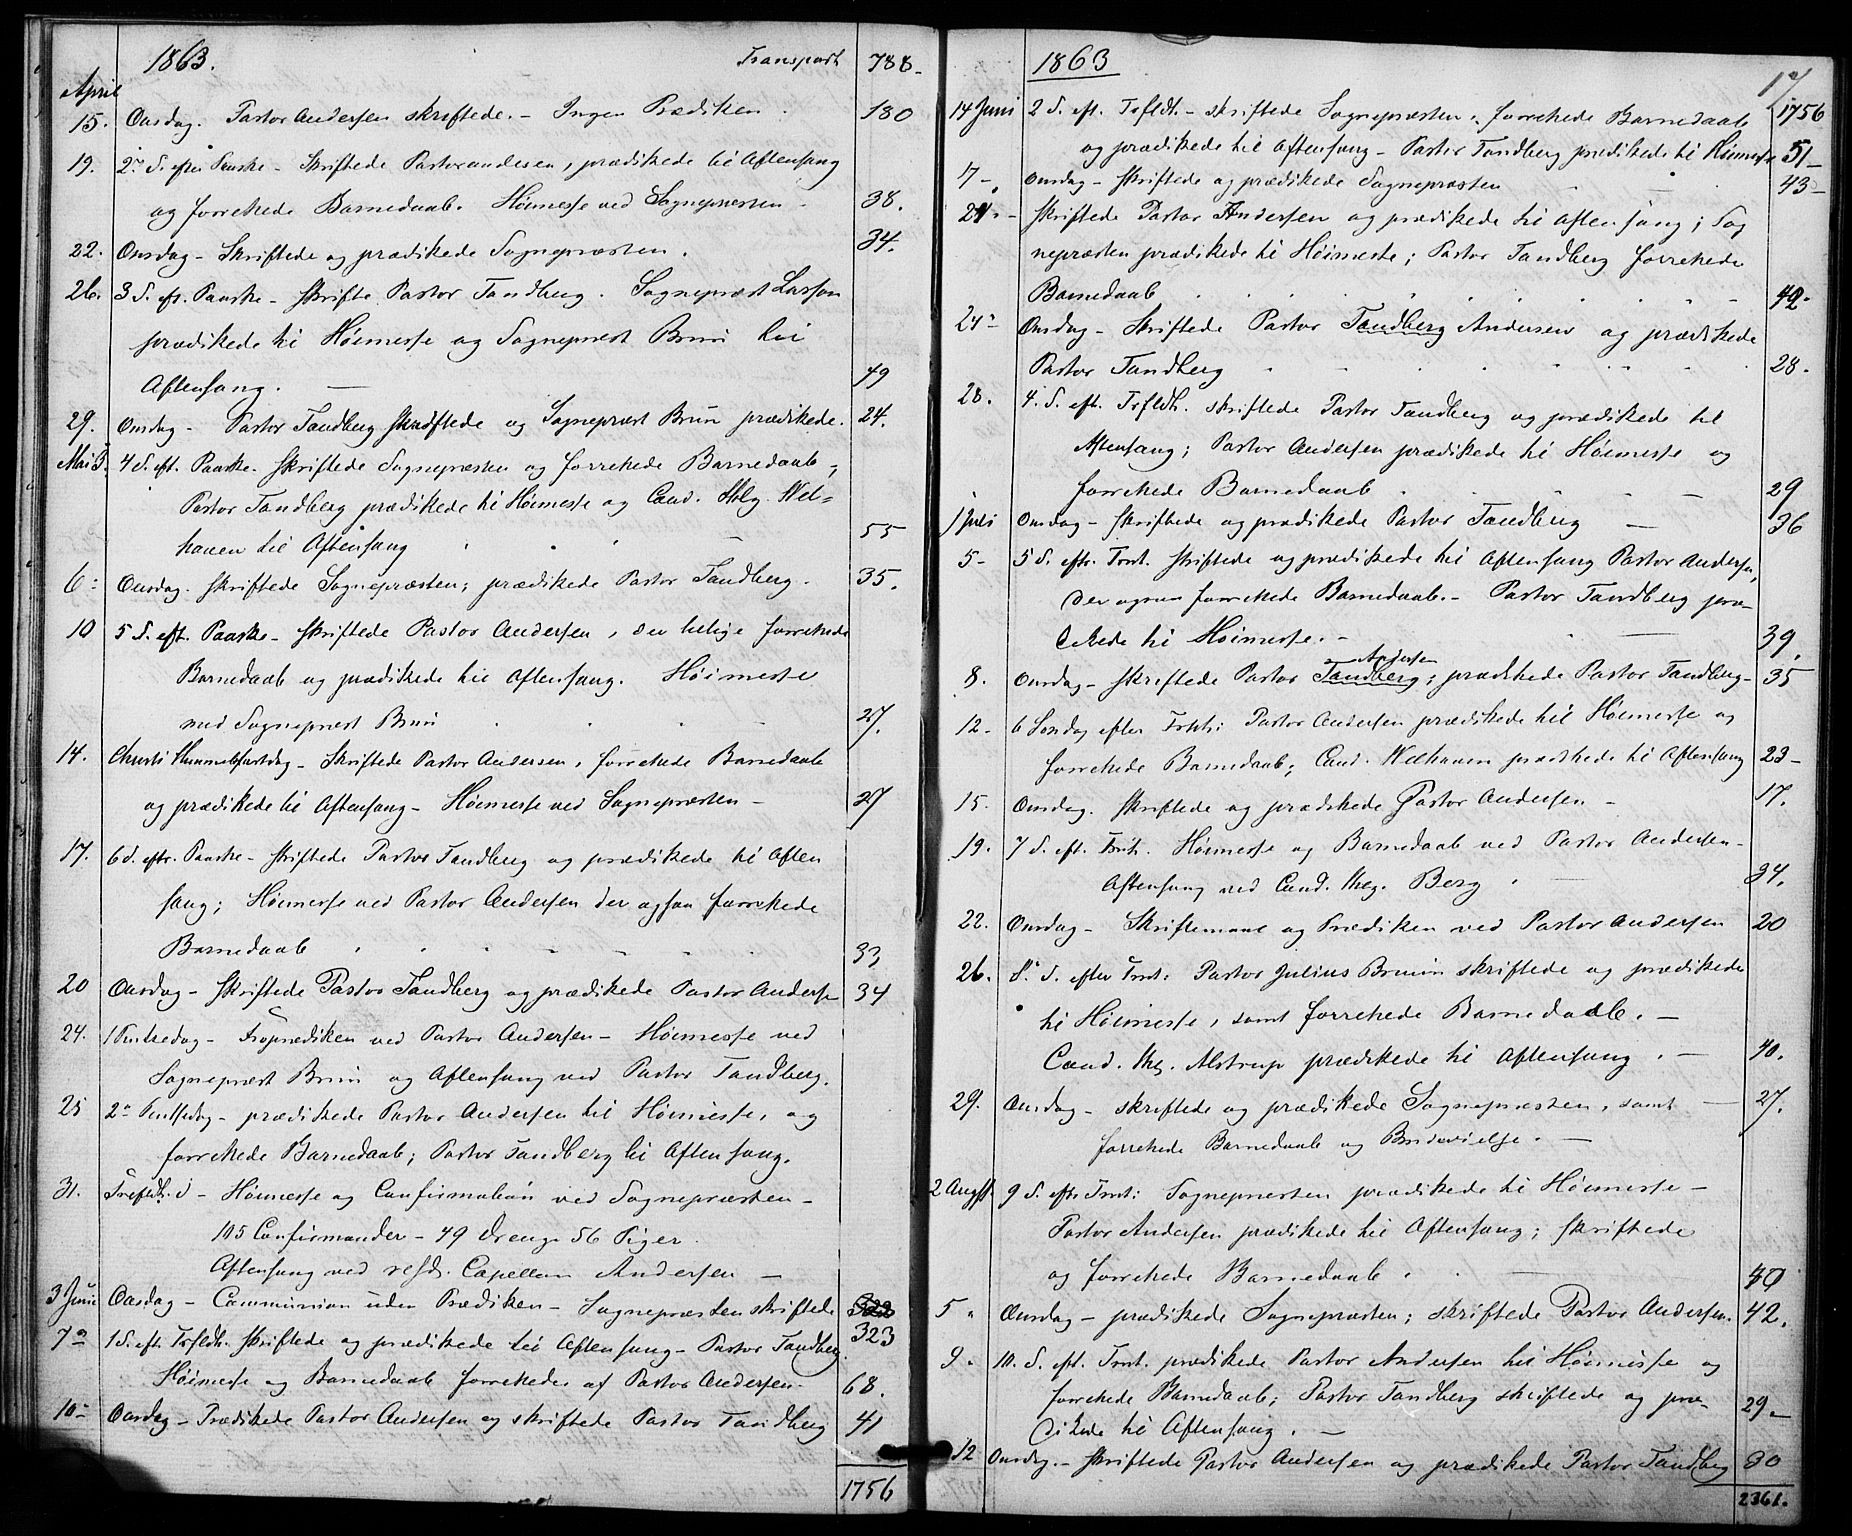 1863. Transport 788.
April
15. Onsdag. Pastor Andersen skriftede. - Ingen Prædiken. 180
19. 2n S. efter Paaske - Skriftede Pastor Andersen, prædikede til Aftensang
og forrettede Barnedaab. Høimesse ved Sognepræsten - 38.
22. Onsdag - Skriftede og prædikede Sognepræsten. 34.
26. 3 S. eft. Paaske - skrifte Pastor Tandberg. Sognepræst Larson
prædikede til Høimesse og Sognepræst Brun til
Aftensang. 49
29. Onsdag - Pastor Tandberg skriftede og Sognepræst Brun prædikede. 24.
Mai 3. 4 S. eft. Paaske. Skriftede Sognepræsten og forrettede Barnedaab,
Pastor Tandberg prædikede til Høimesse og Cand. theolg. Wel-
haven til Aftensang 55
6: Onsdag. skriftede Sognepræsten; prædikede Pastor Tandberg. 35.
10 5 S. eft. Paaske - skriftede Pastor Andersen, der tillige forrettede
Barnedaab og prædikede til Aftensang. Høimesse
ved Sognepræst Brun 27.
14. Christi Himmelfartsdag - Skriftede Pastor Andersen, forrettede Barnedaab
og prædikede til Aftensang - Høimesse ved Sognepræsten - 27
17. 6 S. eftr. Paaske - skriftede Pastor Tandberg og prædikede til Aften
sang; Høimesse ved Pastor Andersen der ogsaa forrettede
Barnedaab 33
20 Onsdag - skriftede Pastor Tandberg og prædikede Pastor Andersen 34
24. 1 Pintsedag - Froprædiken ved Pastor Andersen - Høimesse ved
Sognepræst Brun og Aftensang ved Pastor Tandberg.
25 2n Pintsedag - prædikede Pastor Andersen til Høimesse, og
forrettede Barnedaab; Pastor Tandberg til Aftensang.
31. Trefldh. S - Høimesse og Confirmation ved Sognepræsten -
105 Confirmander - 49 Drenge 56 Piger.
Aftensang ved resd. Capellan Andersen -
3 Juni Onsdag - Communion uden Prædiken - Sognepræsten skriftede 323
7n 1 S. eft. Trfldh. Skriftede og prædikede til Aftensang - Pastor Tandberg
Høimesse og Barnedaab forrettedes af Pastor Andersen. 68.
10n Onsdag - Prædikede Pastor Andersen og skriftede Pastor Tandberg 41
1756
17
1863
14 Juni 2 S. eft. Trfldh. - skriftede Sognepræsten, forrettede Barnedaab 1756
og prædikede til Aftensang - Pastor Tandberg prædikede til Høimesse 51-
7 -. Onsdag - skriftede og prædikede Sognepræsten 43-
21. - skriftede Pastor Andersen og prædikede til Aftensang; Sog
nepræsten prædikede til Høimesse; Pastor Tandberg forrettede
Barnedaab 42.
24n Onsdag - Skriftede Pastor Tandberg Andersen og prædikede
Pastor Tandberg 28.
28. 4. S. eft. Trfldh. skriftede Pastor Tandberg og prædikede til
Aftensang; Pastor Andersen prædikede til Høimesse og
forrettede Barnedaab 29
1 Juli Onsdag - skriftede og prædikede Pastor Tandberg 36
5- 5 S. eftr. Trnt. skriftede og prædikede til Aftensang Pastor Andersen,
der ogsaa forrettede Barnedaab. - Pastor Tandberg præ-
dikede til Høimesse. - 39.
Andersen
8. Onsdag - skriftede Pastor Tandberg; prædikede Pastor Tandberg - 35
12- 6 Søndag efter Trnt: Pastor Andersen prædikede til Høimesse og
forrettede Barnedaab; Cand. Welhaven prædikede til Aftensang 23-
15. Onsdag. skriftede og prædikede Pastor Andersen - 17.
19. 7 S. eft. Trnt. Høimesse og Barnedaab ved Pastor Andersen -
Aftensang ved Cand. theg. Berg 34.
22. Onsdag - Skriftemaal og Prædiken ved Pastor Andersen 20
26. 8n S. efter Trnt: Pastor Julius Bruun skriftede og prædikede
til Høimesse, samt forrettede Barnedaab. -
Cand. theg. Alstrup prædikede til Aftensang. - 40.
29. Onsdag - skriftede og prædikede Sognepræsten, samt 27.
forrettede Barnedaab og Brudevielse. -
2 Augst 9 S. eftr Trnt: Sognepræsten prædikede til Høimesse -
Pastor Andersen prædikede til Aftensang; skriftede
og forrettede Barnedaab. 40
5 " Onsdag - prædikede Sognepræsten; skriftede Pastor Andersen. 42.
9. 10. S. eft. Trnt. prædikede Pastor Andersen til Høimesse og
forrettede Barnedaab; Pastor Tandberg skriftede og præ-
dikede til Aftensang. - 29-
12 Onsdag. - skriftede Pastor Andersen og prædikede Pastor Tandberg 30
2361.